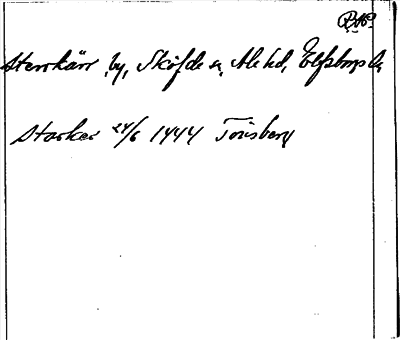 Sterrkärr, by, Sköfde s, Ale hd, Elfsborgs l.
Starker 24/6 1444 Tönsberg